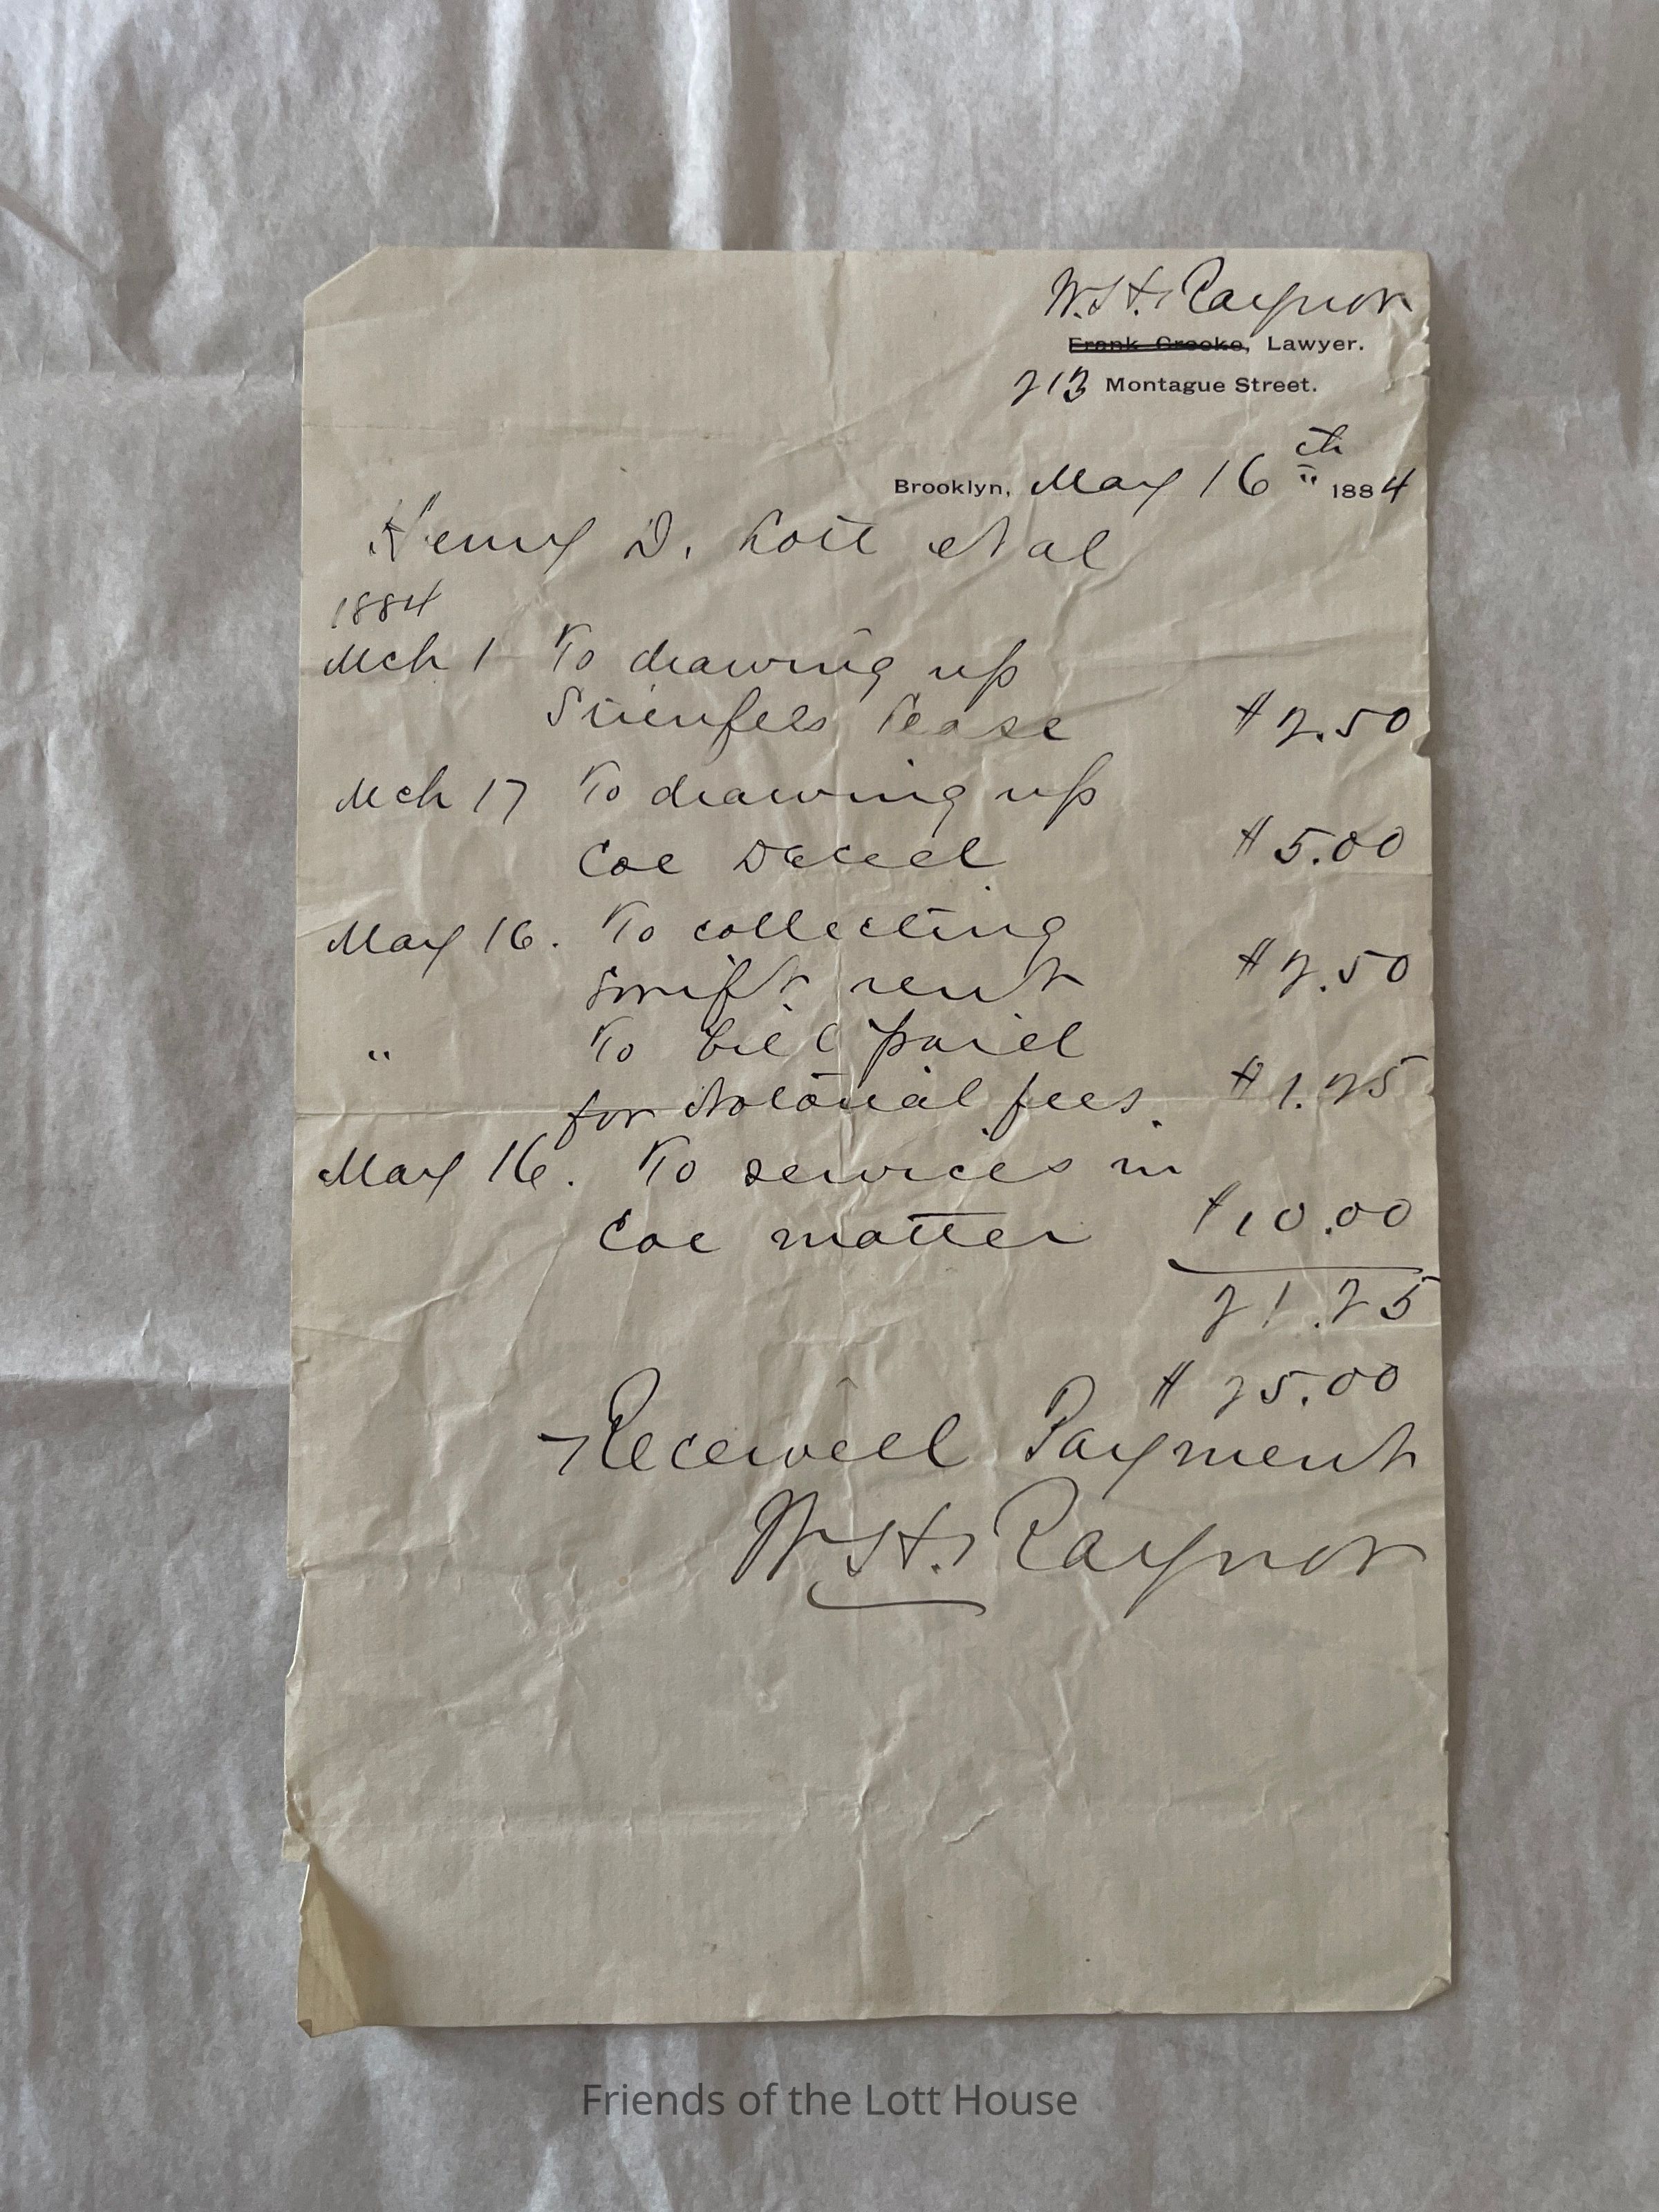 W. H. Raynor
Frank Crooke, Lawyer.
213 Montague Street.
Brooklyn, May 16th 1884
Henry D. Lott et al
1884
Mch 1 To drawing up
Lease $2.50
Mch 17 To drawing up
Coe Deed $5.00
May 16. To collecting
Swift rent $2.50
" To bill paid
for Notarial fees. $1.25
May 16. To services in
Coe matter $10.00
21.25
$25.00
Received Payment
W. H. Raynor
Friends of the Lott House